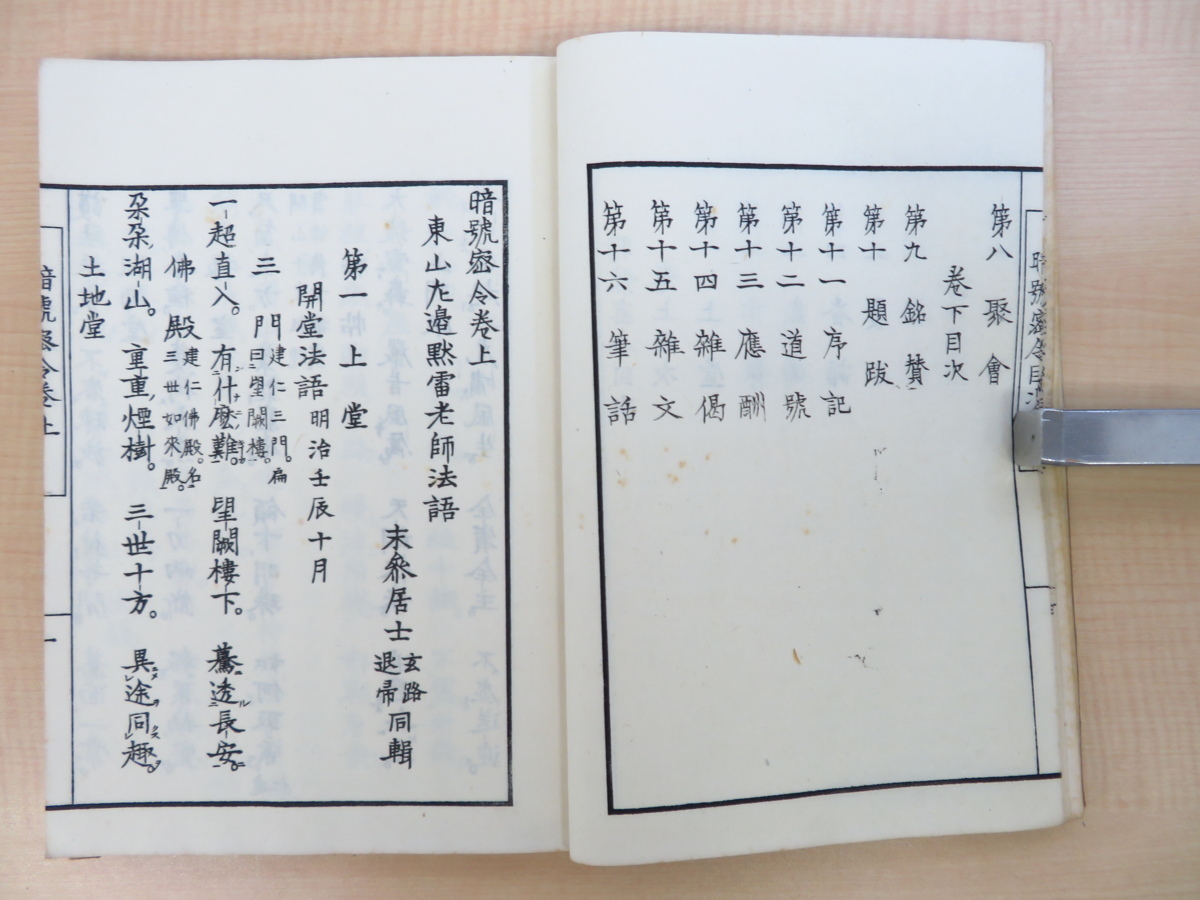 第八 聚會
卷下目次
第九 銘贊
第十 題跋
第十一 序記
第十二 道號
第十三 應酬
第十四 雜偈
第十五 雜文
第十六 筆話
暗號密令卷上
東山左邉默雷老師法語
末叅居士 玄路 退帰 同輯
第一 上堂
開堂法語 明治壬辰十月
三門 建仁三門。扁曰望闕樓。
一超直入。有什麼難。望闕樓下。驀透長安。
佛殿 建仁佛殿。名三世如來殿。
朶朶湖山。重重煙樹。三世十方。異途同趣。
土地堂
暗號密令卷上
一